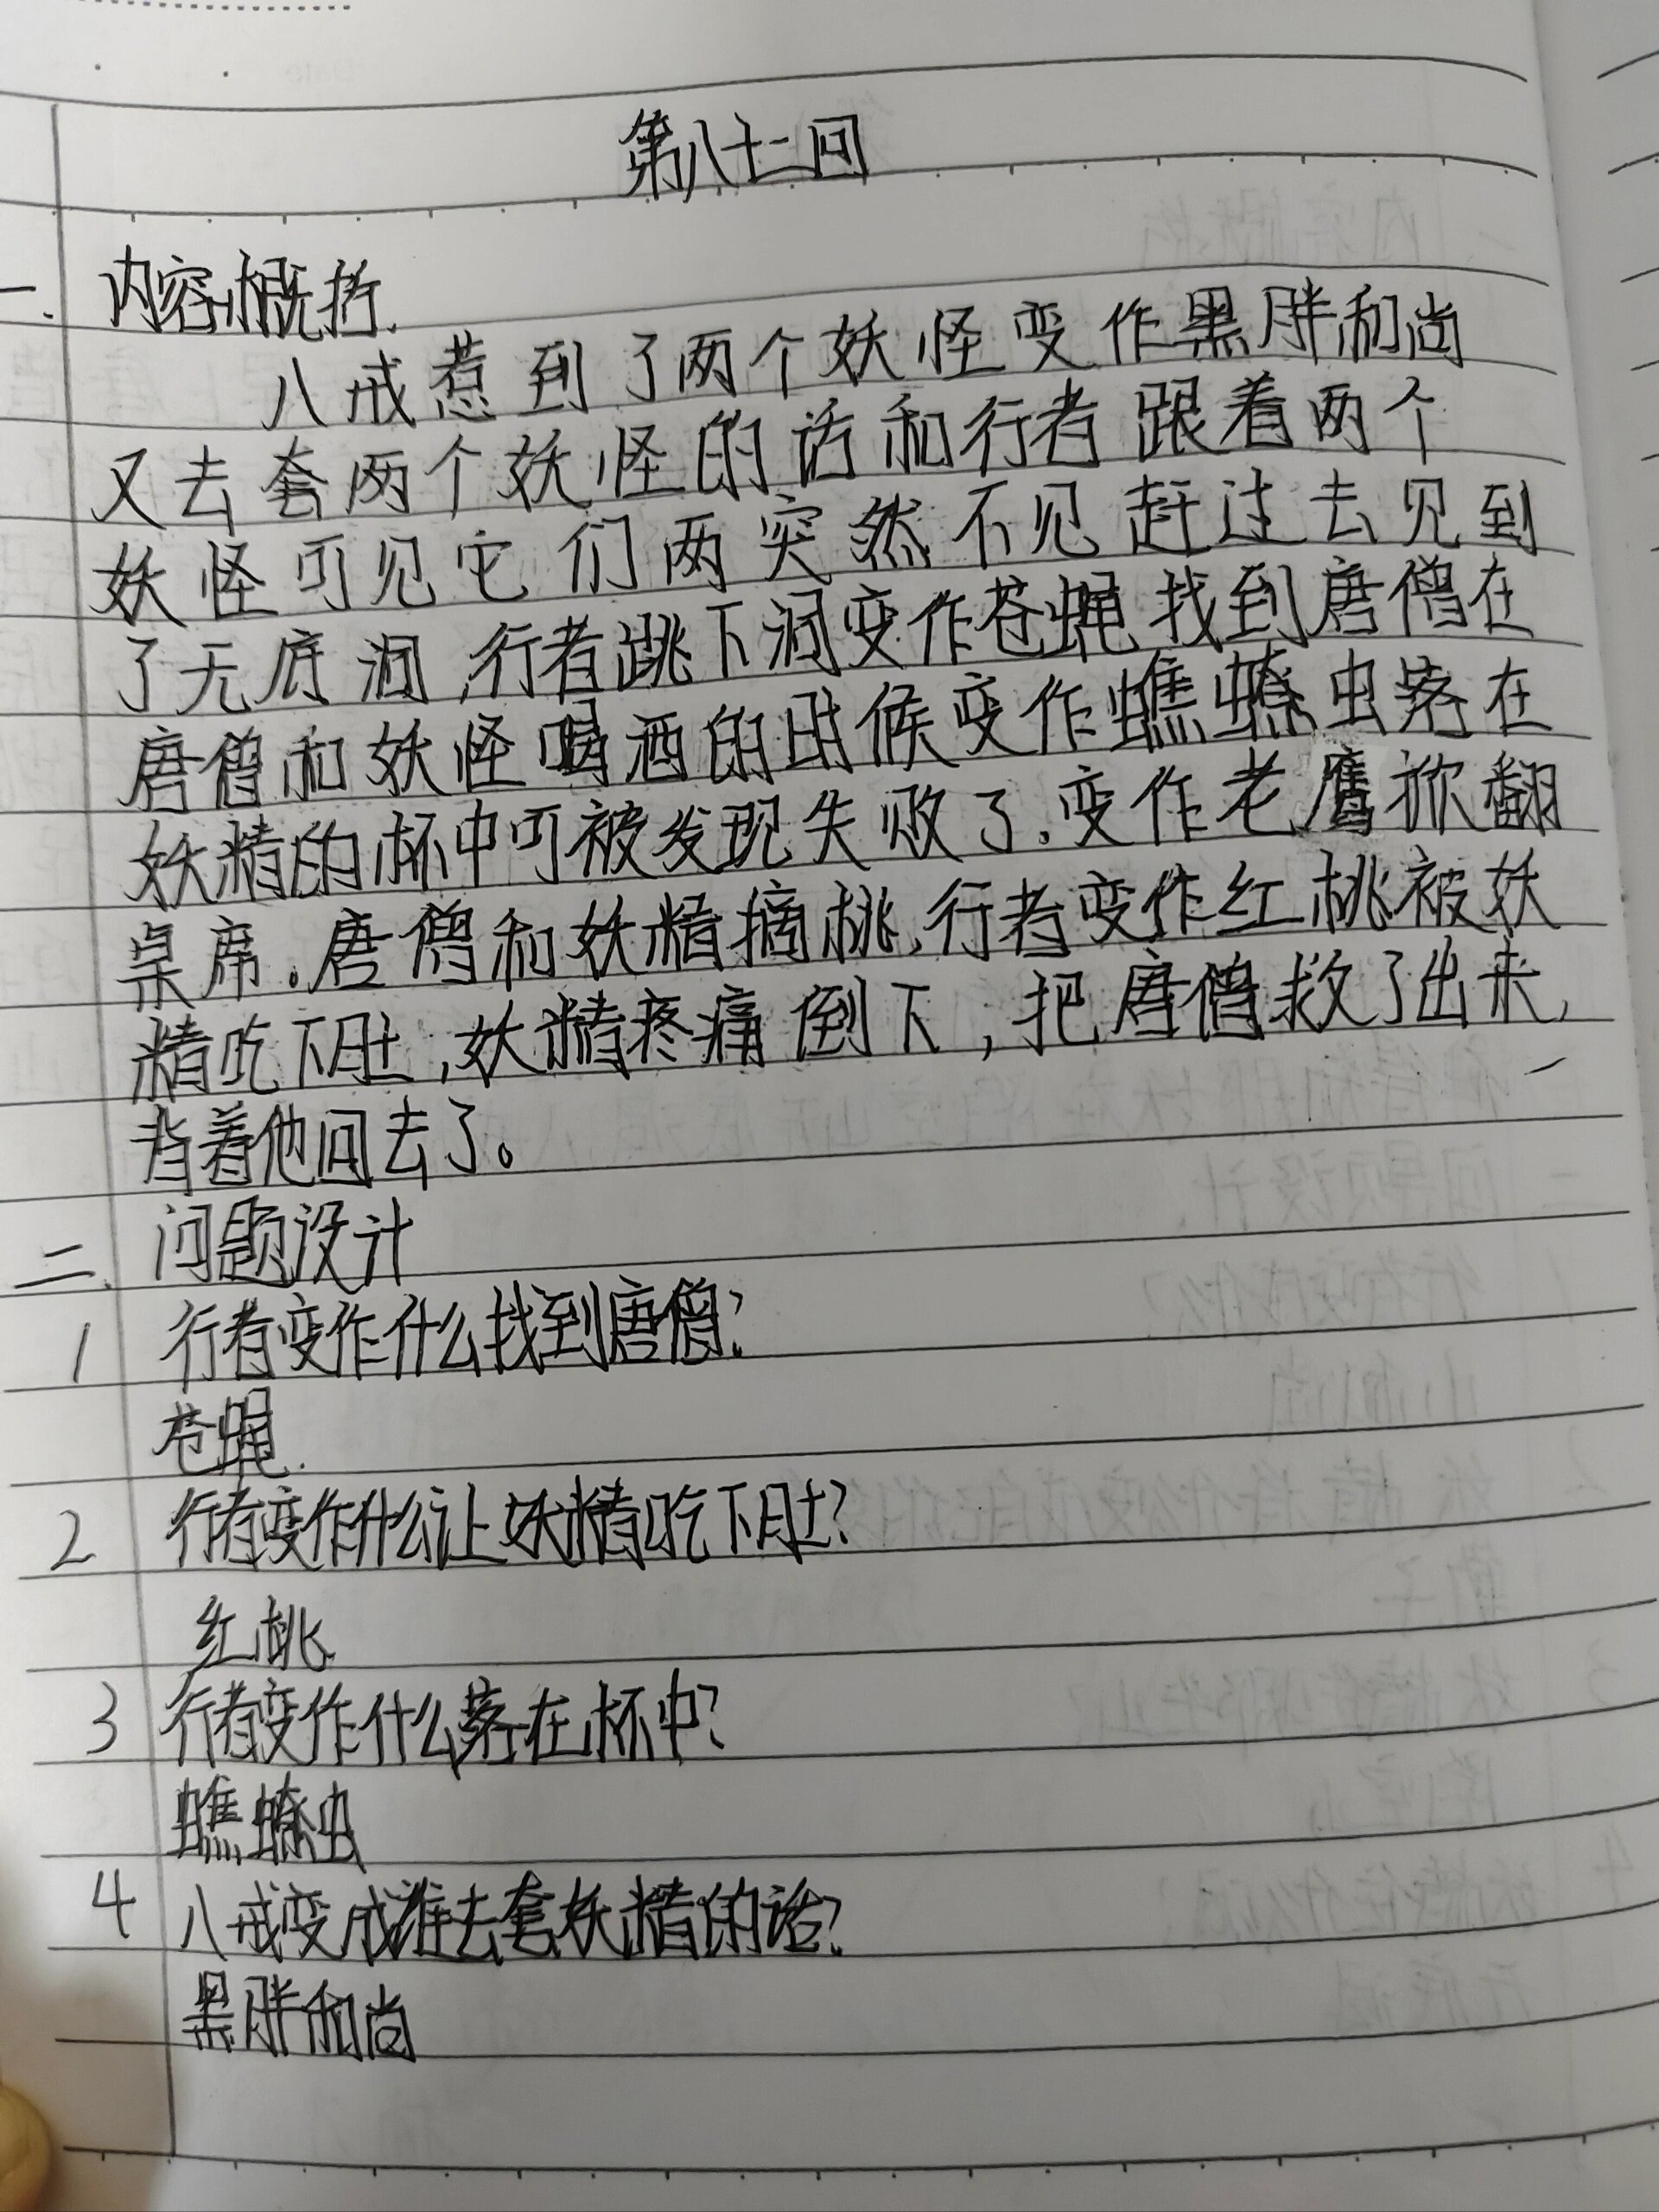 第八十二回
一. 内容概括.
八戒惹到了两个妖怪变作黑胖和尚
又去套两个妖怪的话和行者跟着两个
妖怪可见它们两突然不见赶过去见到
了无底洞,行者跳下洞变作苍蝇找到唐僧在
唐僧和妖怪喝酒的时候变作蟭蟟虫落在
妖精的杯中可被发现失败了.变作老鹰掀翻
桌席。唐僧和妖精摘桃,行者变作红桃被妖
精吃下肚,妖精疼痛倒下,把唐僧救了出来,
背着他回去了。
二. 问题设计
1 行者变作什么找到唐僧?
苍蝇.
2 行者变作什么让妖精吃下肚?
红桃
3 行者变作什么落在杯中?
蟭蟟虫
4 八戒变成谁去套妖精的话?
黑胖和尚